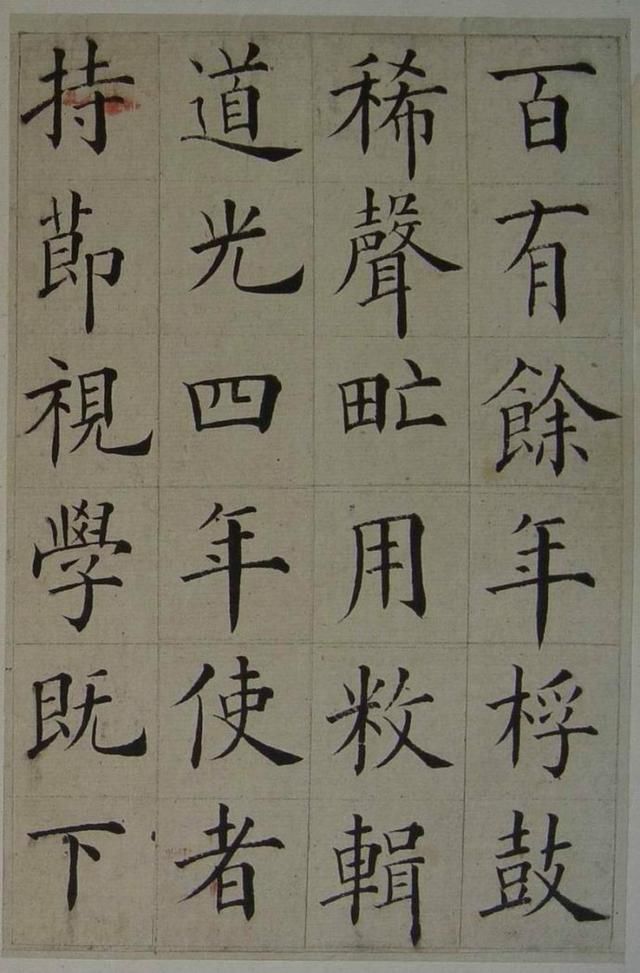 百有餘年桴鼓
稀聲甿用敉輯
道光四年使者
持莭視學既下